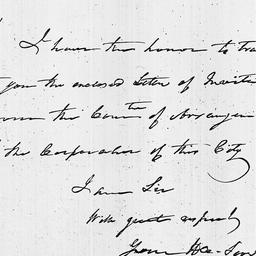 I have the honor to tra
you the enclosed Letter of Invita
from the Comtee of Arrangem
the Corporation of this City
I am Sir
With great respect
Your Obt. Ser